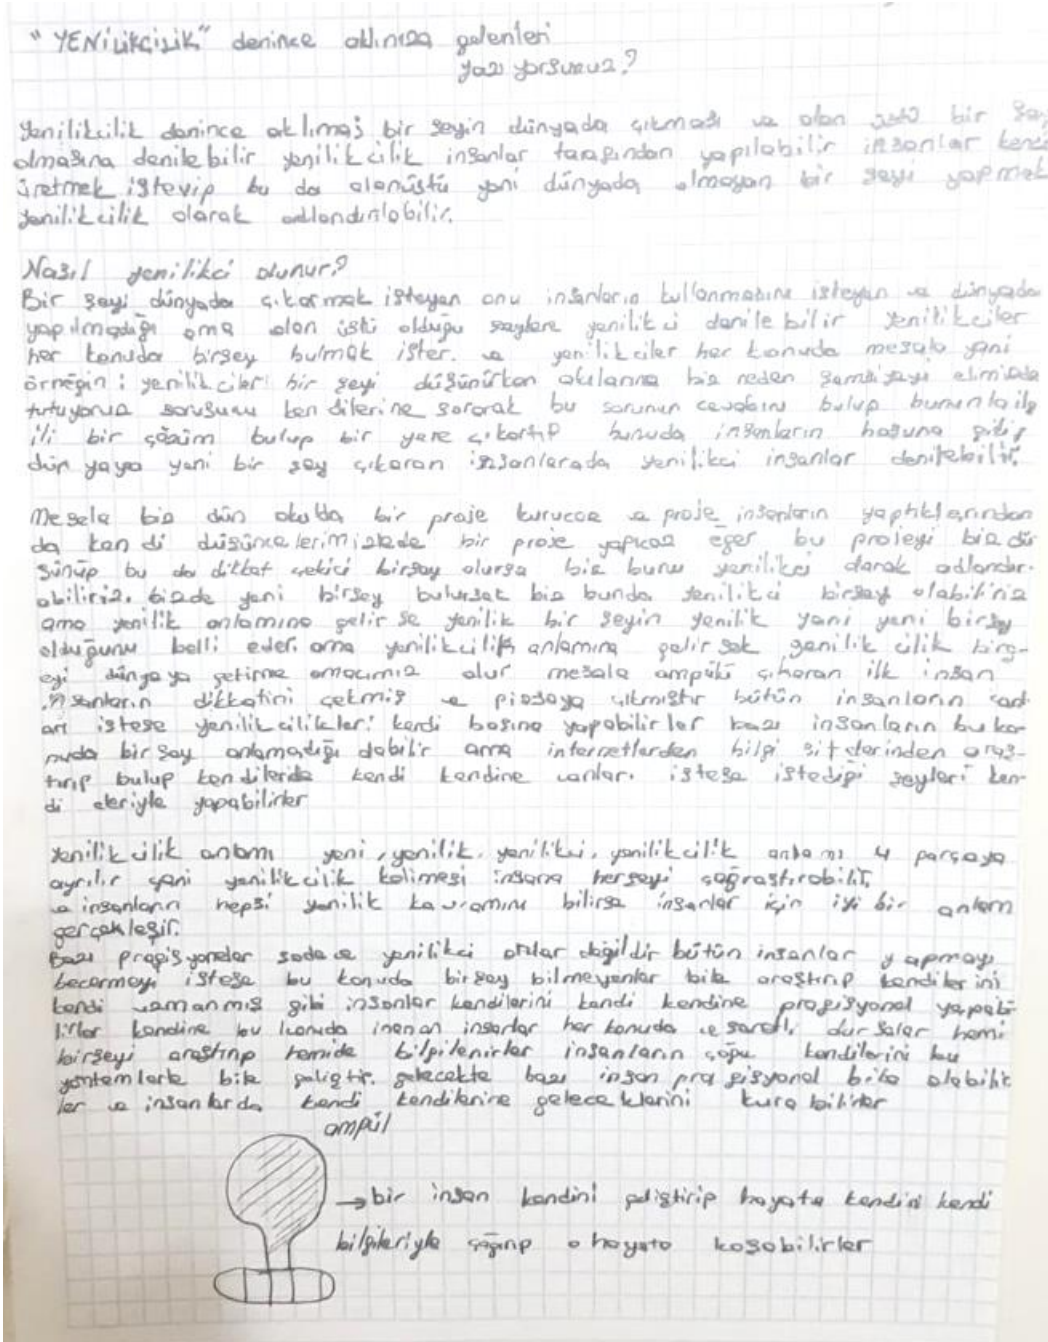 "YENİLİKÇİLİK" denince aklınıza gelenleri
yazı yorsunuz?
Yenilikcilik denince aklıma; bir şeyin dünyada çıkması ve olan üstü bir şey
olmasına denilebilir yenilikcilik insanlar tarafından yapılabilir insanlar kendi
üretmek isteyip bu da olanüstü yani dünyada olmayan bir şeyi yapmak
yenilikcilik olarak adlandırılabilir.
Nasıl yenilikci olunur?
Bir şeyi dünyada çıkarmak isteyen onu insanların kullanmasını isteyen ve dünyada
yapılmadığı ama olan üstü olduğu şeylere yenilikci denile bilir Yenilikciler
her konuda birşey bulmak ister. ve yenilikciler her konuda mesala yani
örneğin: yenilikcileri bir şeyi düşünürken akılarına biz neden şemsiyeyi elimizde
tutuyoruz sorusunu ken dilerine sorarak bu sorunun cevabını bulup bununla ilg
ili bir çözüm bulup bir yere çıkartıp bunuda insanların hoşuna gidip
dün yaya yeni bir şey çıkaran insanlarada yenilikci insanlar denilebilir.
Mesela biz dün okulda bir proje kurucaz ve proje insanların yaptıklarından
da ken di düşüncelerimizlede bir proje yapıcaz eğer bu projeyi biz dü
şünüp bu da dikkat çekici birşey olursa biz bunu yenilikci olarak adlandır
abiliriz. bizde yeni birşey bulursak biz bunda yenilikci birşey olabiliriz
ama yenilik anlamına gelir se yenilik bir şeyin yenilik yani yeni birşey
olduğunu belli eder. ama yenilikcilik anlamına gelir sek yenilik cilik birş-
eyi dünyaya getirme amacımız olur mesala ampülü çıkaran ilk insan
insanların dikkatini çekmiş ve piasaya çıkmıştır bütün insanların
istese yenilikcilikleri kendi başına yapabilirler bazı insanların bu ko-
nuda bir şey anlamadığı olabilir ama internetlerden bilgi sitelerinden araş-
tırıp bulup kendileride kendi kendine istese istediği şeyleri ken-
di eleriyle yapabilirler
Yenilikcilik anlamı yeni, yenilik, yenilikci, yenilikcilik anlamı 4 parçaya
ayrılır yani yenilikcilik kelimesi insana herşeyi çağraştırabilir.
ve insanların hepsi yenilik kavramını bilirse insanlar için iyi bir anlam
gerçekleşir.
Bazı profisyoneler sadece yenilikci onlar değildir bütün insanlar yapmayı
becermeyi istese bu konuda birşey bilmeyenler bile araştırıp kendilerini
kendi uzmanmış gibi insanlar kendilerini kendi kendine profisyonel yapabi
lirler kendine bu konuda inanan insanlar her konuda cesaretli dursalar hemi
birşeyi araştırıp hemide bilgilenirler insanların çoğu kendilerini bu
yöntemlerle bile geliştir. gelecekte bazı insan profisyonel bile olabilir
ler ve insanlarda kendi kendilerine geleceklerini kura bilirler
ampül
→ bir insan kendini geliştirip hayata kendini kendi
bilgileriyle o hayata koşabilirler